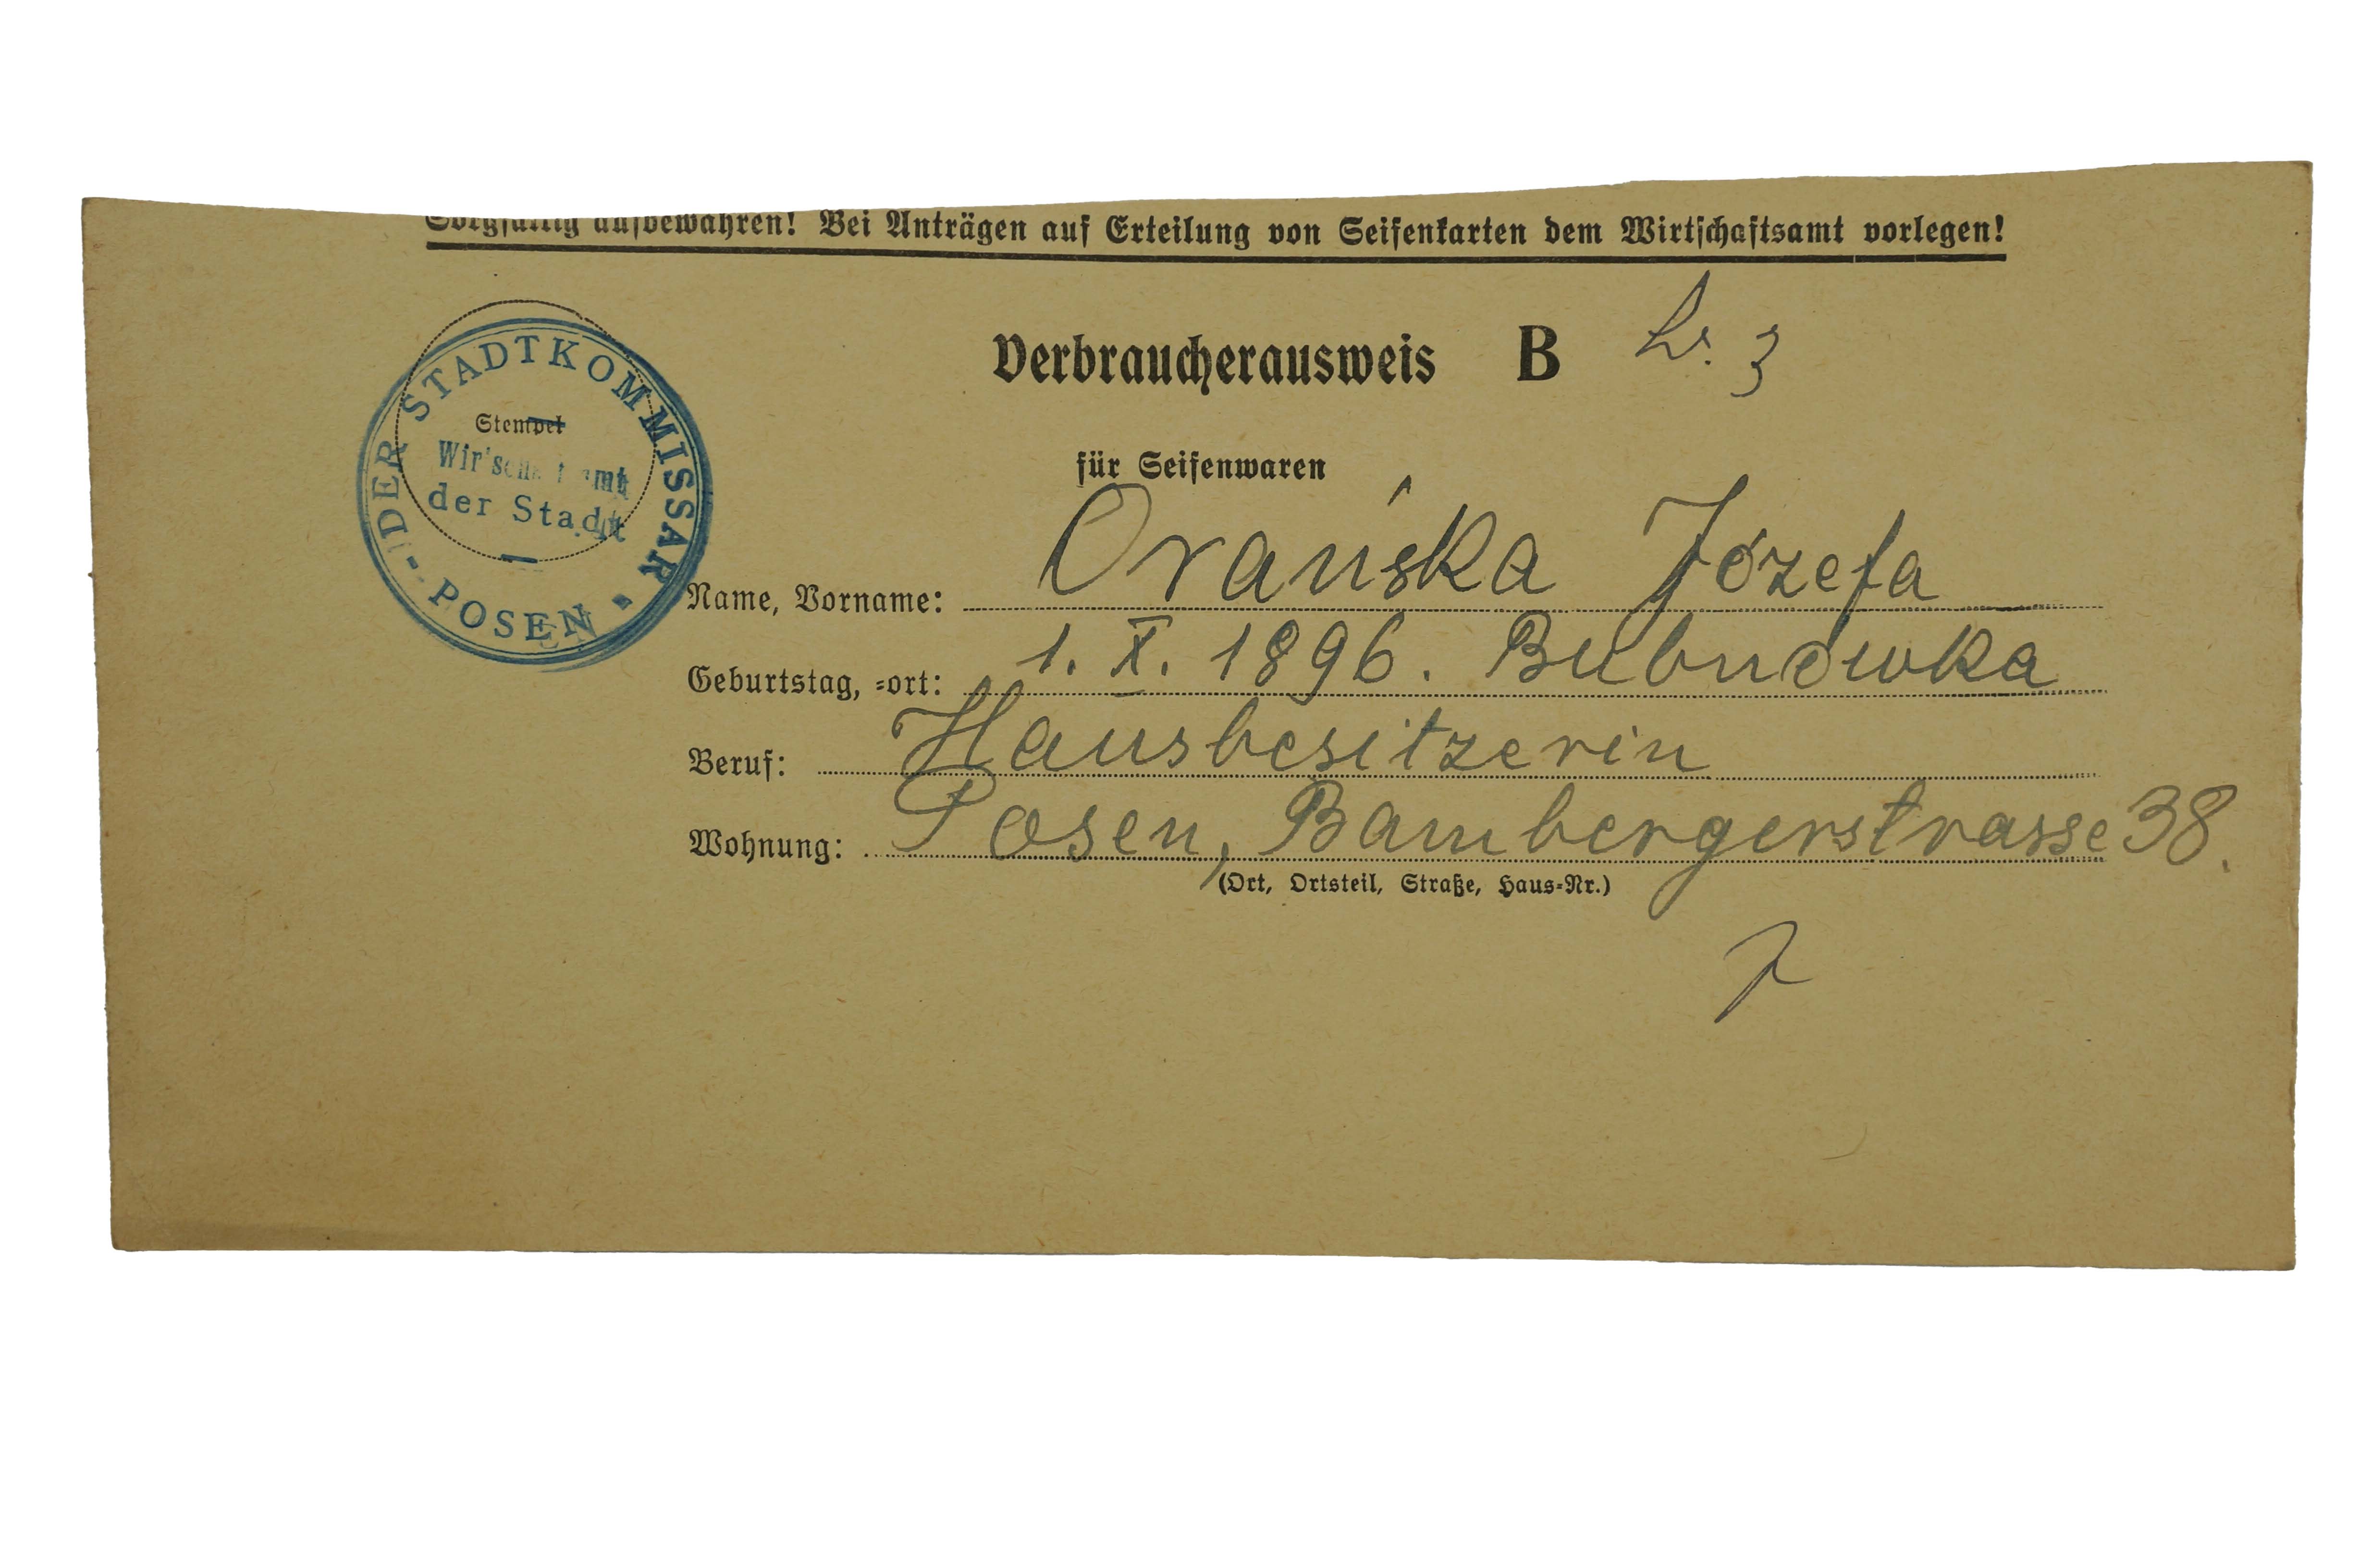 Sorgfältig aufbewahren! Bei Anträgen auf Erteilung von Seifenkarten dem Wirtschaftsamt vorlegen!
Verbraucherausweis B
3
für Seifenwaren
DER STADTKOMMISSAR
Stempel
der Stadt
POSEN
Name, Vorname: Orańska Józefa
Geburtstag, =ort: 1. X. 1896. Bubnówka
Beruf: Hausbesitzerin
Wohnung: Posen, Bambergerstrasse 38.
(Ort, Ortsteil, Straße, Haus=Nr.)